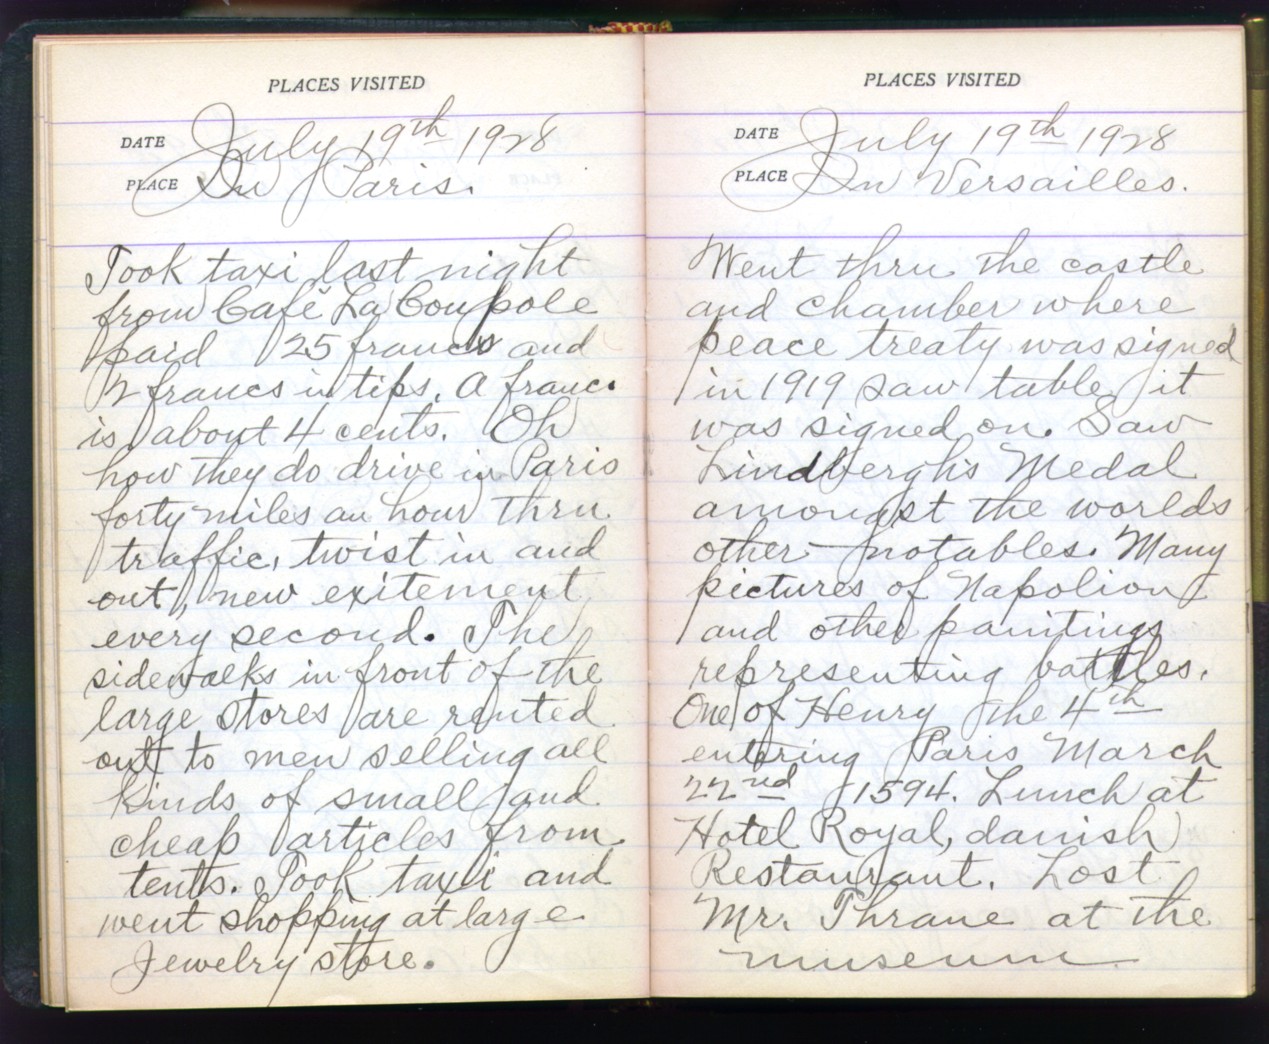 PLACES VISITED
DATE July 19th 1928
PLACE In Paris.
Took taxi last night
from Café La Coupole
paid 25 francs and
2 francs in tips. A franc
is about 4 cents. Oh
how they do drive in Paris
forty miles an hour thru
traffic, twist in and
out, new exitement
every second. The
sidewalks in front of the
large stores are rented
out to men selling all
kinds of small and
cheap articles from
tents. Took taxi and
went shopping at large
Jewelry store.
PLACES VISITED
DATE July 19th 1928
PLACE In Versailles.
Went thru the castle
and chamber where
peace treaty was signed
in 1919 saw table it
was signed on. Saw
Lindberghs Medal
amongst the worlds
other notables. Many
pictures of Napolion
and other paintings
representing battles.
One of Henry the 4th
entering Paris March
22nd 1594. Lunch at
Hotel Royal, danish
Restaurant. Lost
Mr. Thrane at the
museum